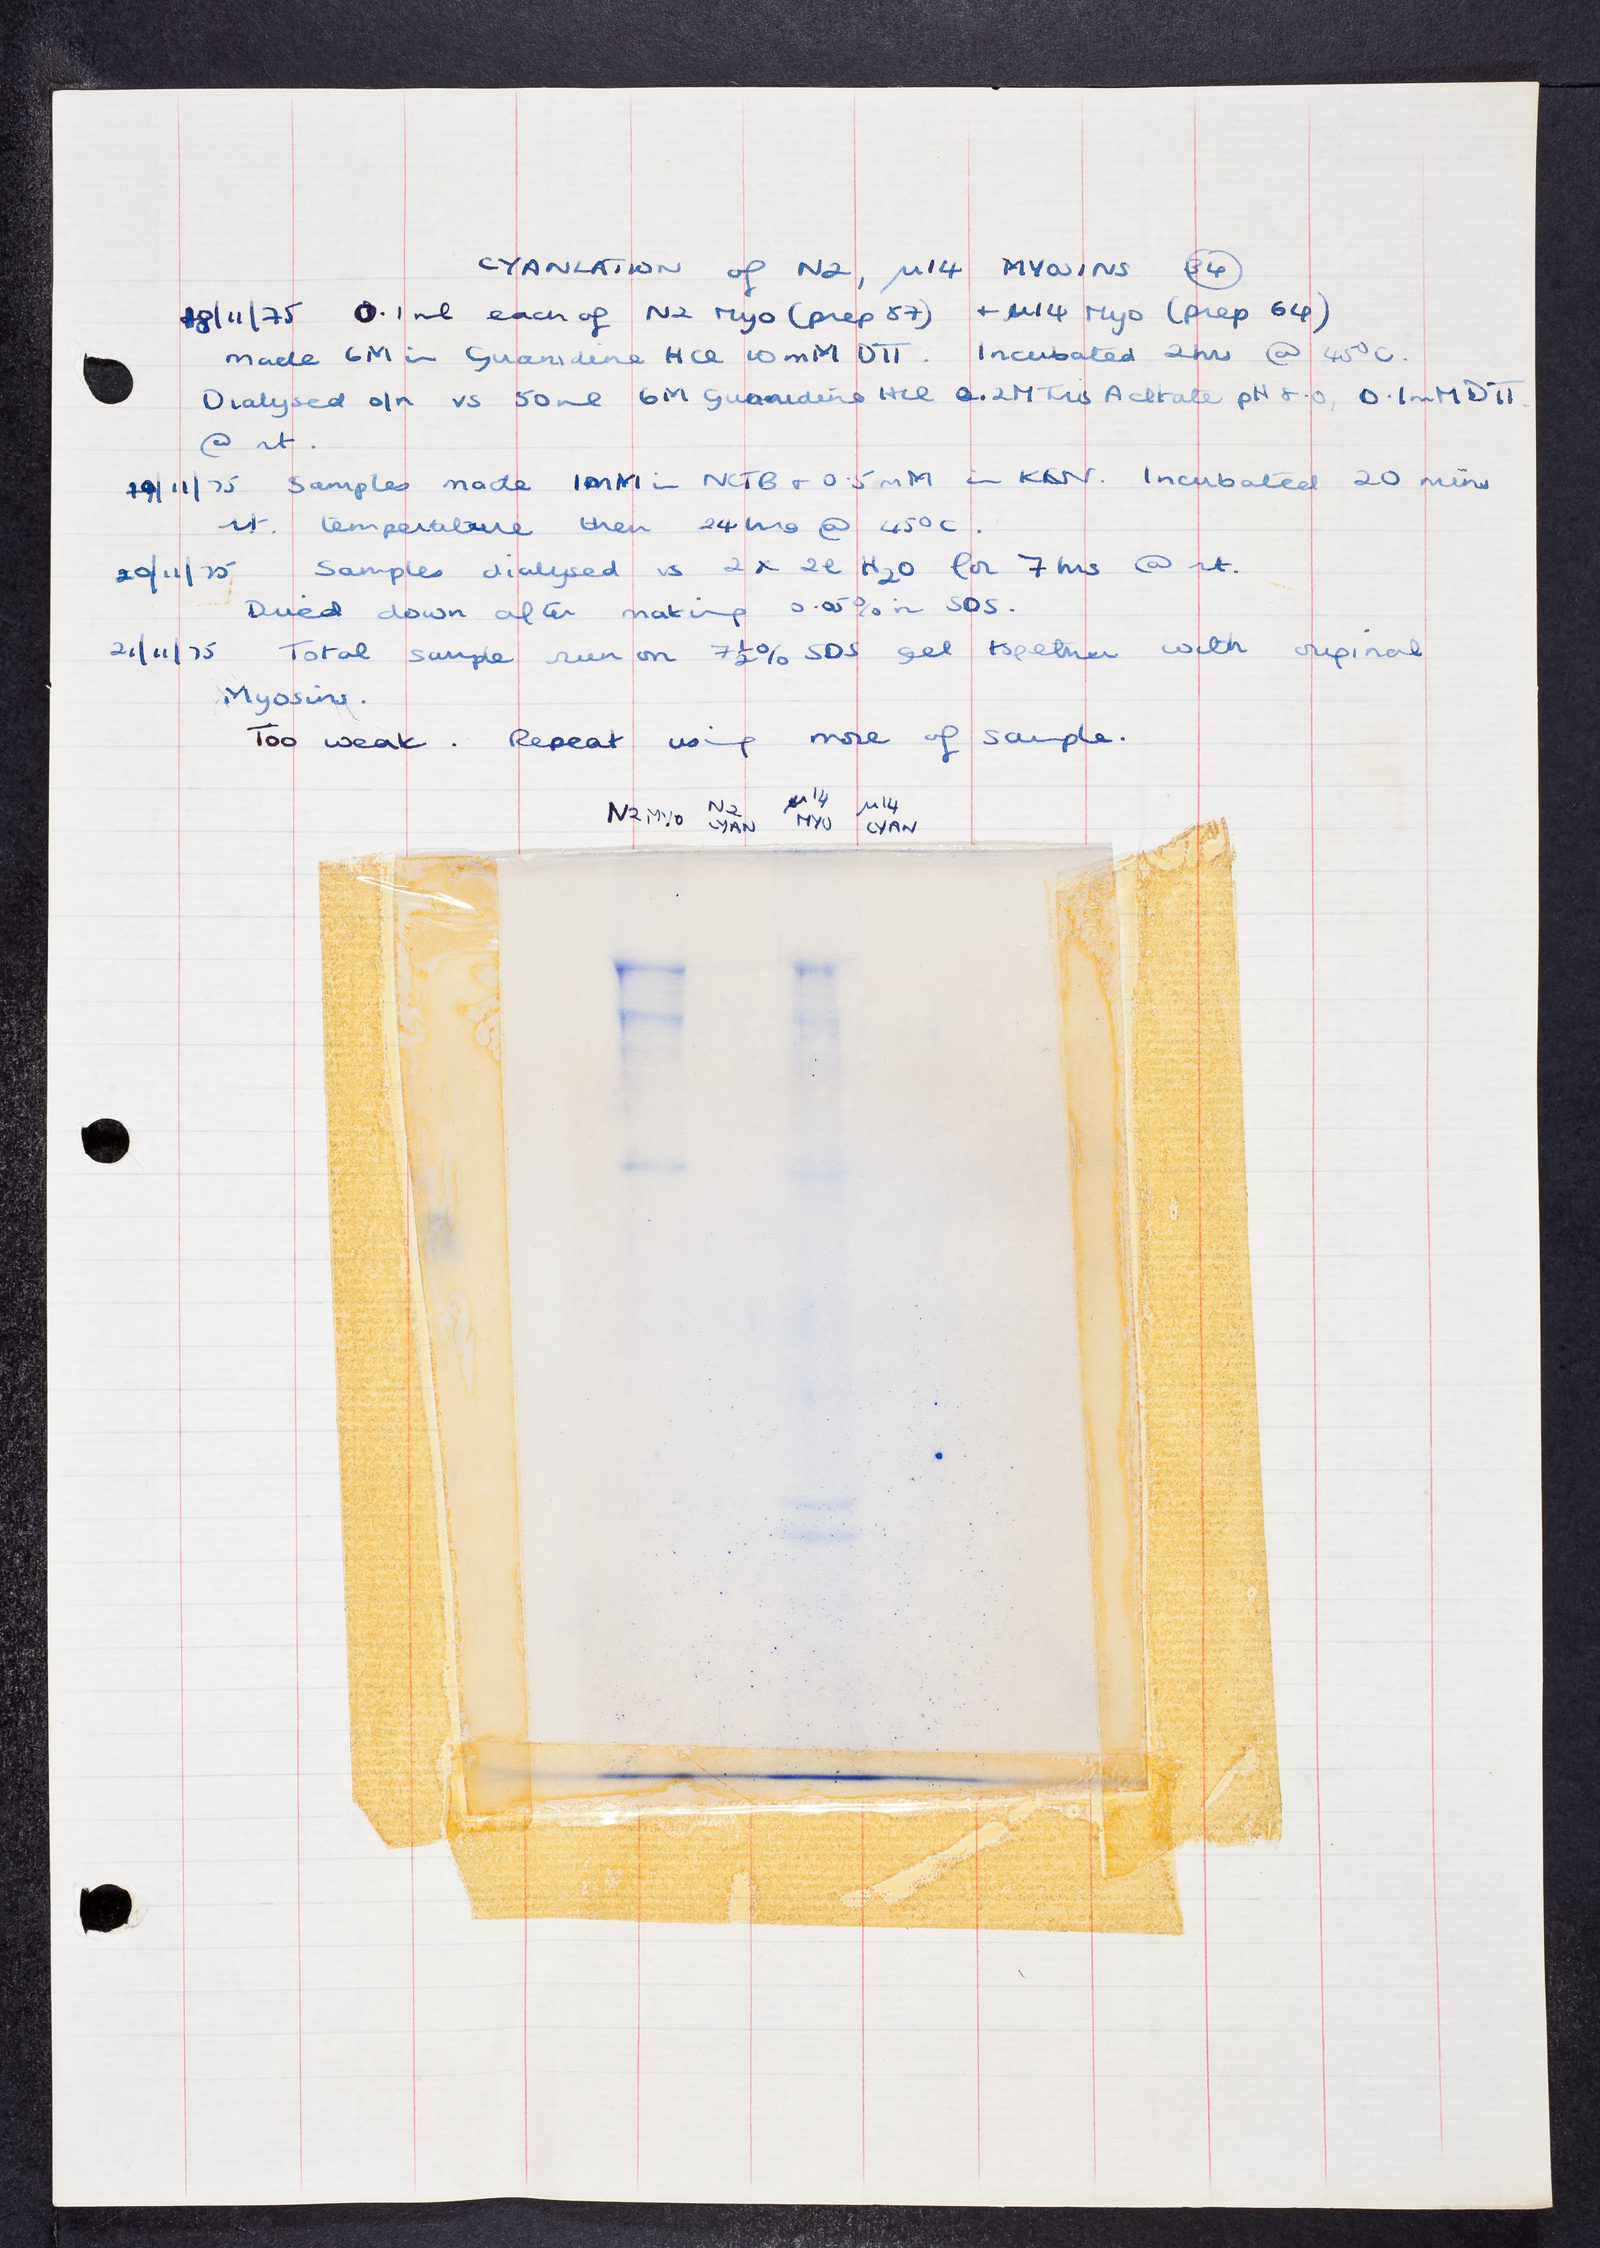 CYANLATION of N2, µ14 MYOSINS 34
18/11/75 0.1 ml each of N2 Myo (prep 87) + µ14 Myo (prep 64)
made 6M in Guanidine HCl 10mM DTT. Incubated 2hrs @ 45°C.
Dialysed o/n vs 50ml 6M Guanidine HCl 0.2M Tris Acetate pH 8.0, 0.1mM DTT
@ rt.
19/11/75 Samples made 1mM in NCTB + 0.5mM in KCN. Incubated 20 mins
rt. temperature then 24hrs @ 45°C.
20/11/75 Samples dialysed vs 2 x 2l H2O for 7hrs @ rt.
Dried down after making 0.05% in SDS.
21/11/75 Total sample run on 7½% SDS gel together with original
Myosins.
Too weak. Repeat using more of sample.
N2 MYO N2 CYAN µ14 MYO µ14 CYAN